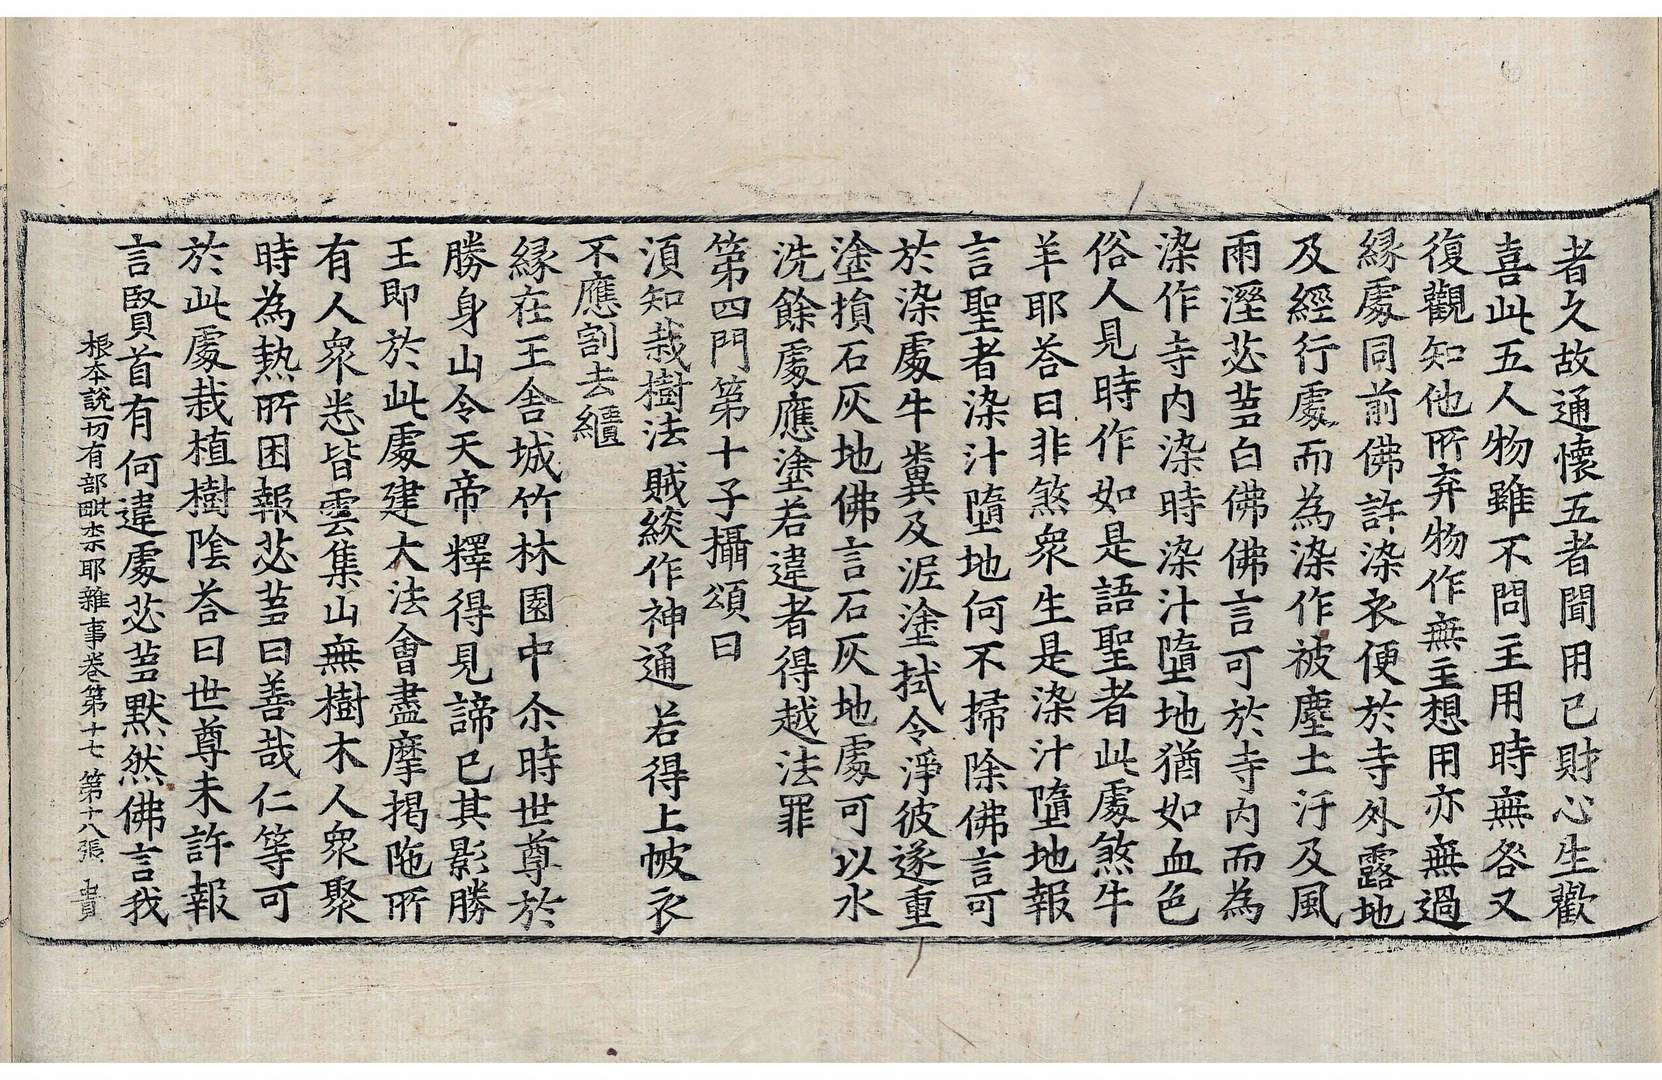 者久故通懷五者聞用己財心生歡
喜此五人物雖不問主用時無咎又
復觀知他所弃物作無主想用亦無過
緣處同前佛許染衣便於寺外露地
及經行處而為染作被塵土汙及風
雨溼苾芻白佛佛言可於寺內而為
染作寺內染時染汁墮地猶如血色
俗人見時作如是語聖者此處煞牛
羊耶荅曰非煞眾生是染汁墮地報
言聖者染汁墮地何不掃除佛言可
於染處牛糞及泥塗拭令淨彼遂重
塗損石灰地佛言石灰地處可以水
洗餘處應塗若違者得越法罪
第四門第十子攝頌曰
須知栽樹法 賊緂作神通 若得上帔衣
不應割去繼
緣在王舍城竹林園中尒時世尊於
勝身山令天帝釋得見諦已其影勝
王即於此處建大法會盡摩揭陁所
有人眾悉皆雲集山無樹木人眾聚
時為熱所困報苾芻曰善哉仁等可
於此處栽植樹陰荅曰世尊未許報
言賢首有何違處苾芻默然佛言我
根本說一切有部毗柰耶雜事卷第十七 第十八張 貴